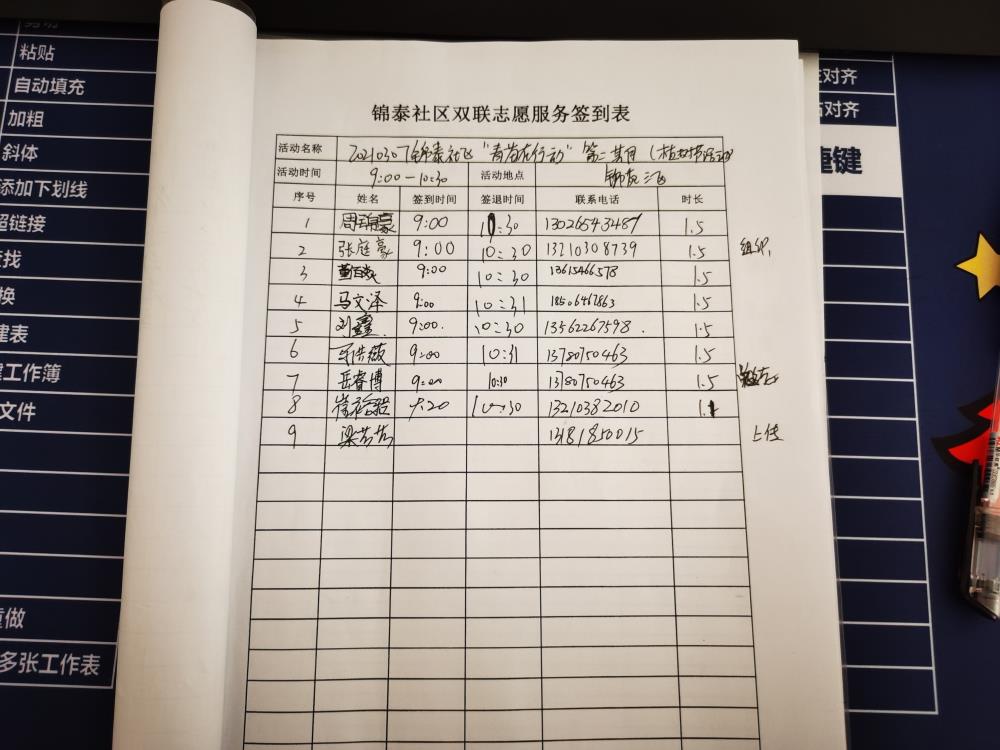 粘贴
自动填充
加粗
斜体
添加下划线
超链接
查找
换
建表
工作簿
文件
重做
多张工作表
左对齐
右对齐
捷键
锦泰社区双联志愿服务签到表
活动名称 20210307锦泰社区"青春在行动"第二期(植树节活动)
活动时间 9:00-10:30 活动地点 锦泰三区
序号 姓名 签到时间 签退时间 联系电话 时长
1 周瑞豪 9:00 10:30 13026543487 1.5
2 张庭豪 9:00 10:30 13210308739 1.5 组织
3 9:00 10:30 13615466578 1.5
4 马文泽 9:00 10:31 18506467863 1.5
5 刘鑫 9:00. 10:30 13562267598. 1.5
6 浩薇 9:00 10:31 13780750463 1.5
7 岳睿博 9:00 10:30 13780750463 1.5
8 9:20 10:30 13210382010 1.1
9 梁芸芸 13181850015 上传